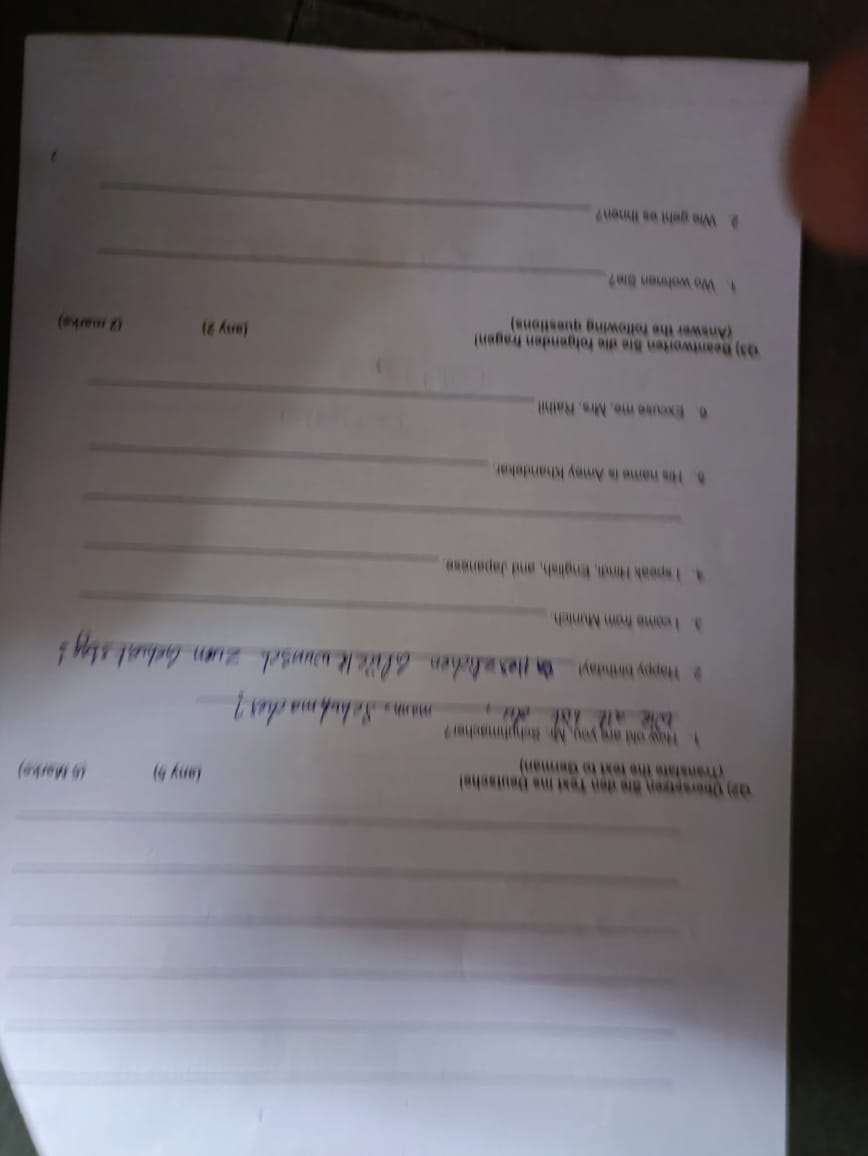 Q2) Übersetzen Sie den Text ins Deutsche! (any 5) (5 Marks)
(Translate the text to German)
1. How old are you, Mr. Schuhmacher?
Wie alt bist du, mann, Schuhmacher?
2. Happy birthday! Herzlichen Glückwunsch zum Geburtstag!
3. I come from Munich.
4. I speak Hindi, English, and Japanese.
5. His name is Amey Khandekar.
6. Excuse me, Mrs. Rathi!
Q3) Beantworten Sie die folgenden fragen! (any 2) (2 marks)
(Answer the following questions)
1. Wo wohnen Sie?
2. Wie geht es Ihnen?
2